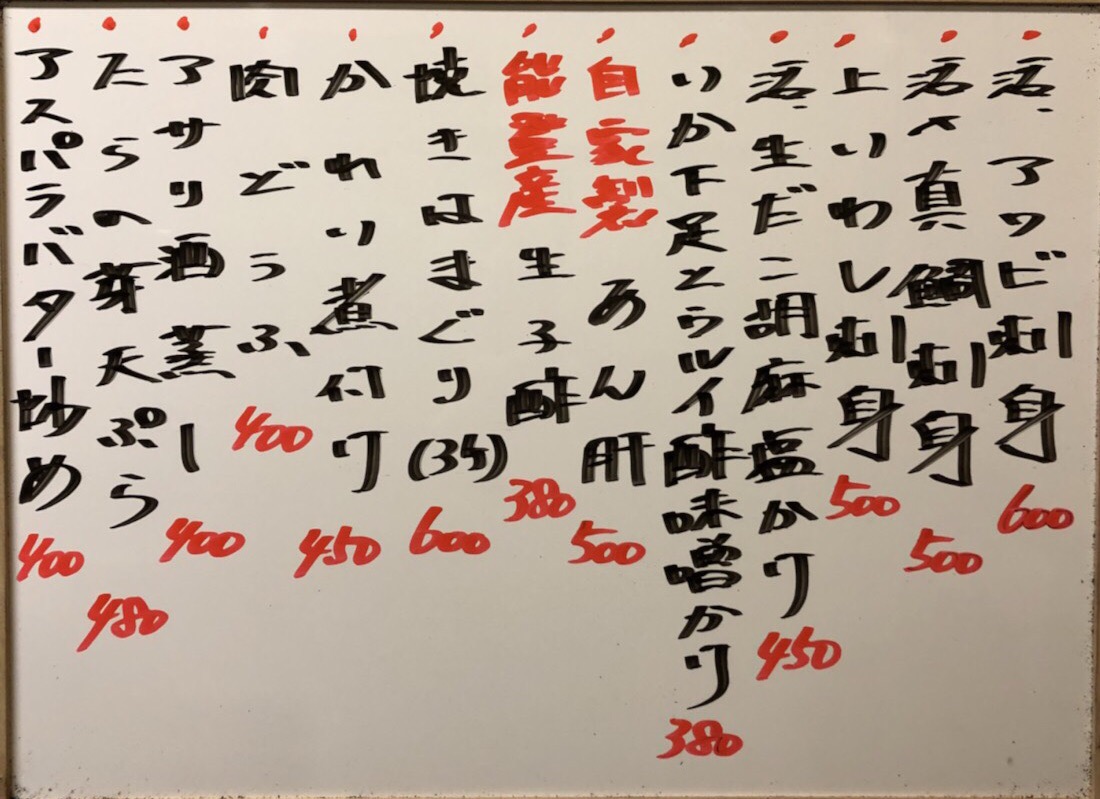 活、アワビ刺身 600
活〆真鯛刺身 500
上いわし刺身 500
活、生だこ胡麻塩かけ 450
いか下足とウルイ酢味噌かけ 380
自家製 あん肝 500
能登産 生子酢 380
焼きはまぐり(3ケ) 600
かれい煮付け 450
肉どうふ 400
アサリ酒蒸し 400
たらの芽天ぷら 480
アスパラバター炒め 400